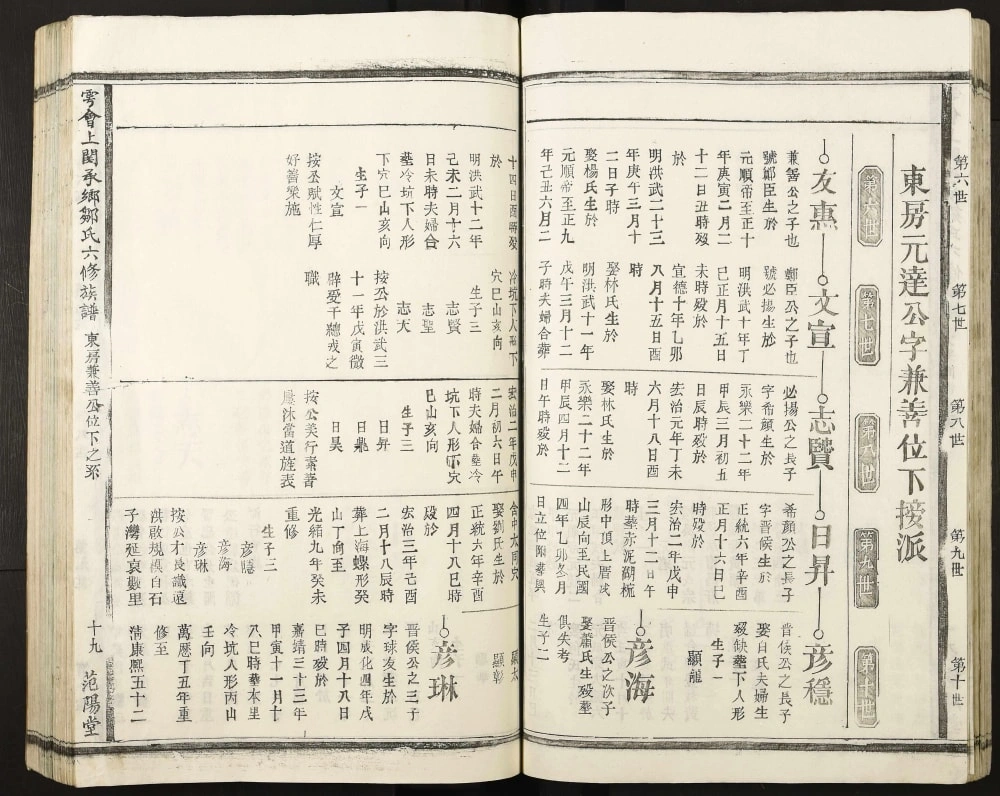 第六世
第七世
第八世
第九世
第十世
東房元達公字兼善位下按派
第六世
第七世
第八世
第九世
第十世
友惠
兼善公之子也
號鄉臣生於
元順帝至正十
年庚寅二月二
十二日丑時歿
於
明洪武二十三
年庚午三月十
二日子時
娶楊氏生於
元順帝至正九
年己丑六月二
十四日酉時歿
於
明洪武十二年
己未二月十六
日未時夫婦合
塟冷坑下人形
下穴巳山亥向
生子一
文宣
按公賦性仁厚
好善樂施
文宣
鄉臣公之子也
號必揚生於
明洪武十年丁
巳正月十五日
未時歿於
宣德十年乙卯
八月十五日酉
時
娶林氏生於
明洪武十一年
戊午三月十二
子時夫婦合塟
冷坑下人形下
穴巳山亥向
生子三
志賢
志聖
志天
按公於洪武三
十一年戊寅徵
辟受千總戎之
職
志賢
必揚公之長子
字希顏生於
永樂二十二年
甲辰三月初五
日辰時歿於
宏治元年丁未
六月十八日酉
時
娶林氏生於
永樂二十二年
甲辰四月十二
日午時歿於
宏治二年戊申
二月初六日午
時夫婦合塟冷
坑下人形下穴
巳山亥向
生子三
日昇
日鼎
日昊
按公美行素著
屢沐當道旌表
日昇
希顏公之長子
字晋候生於
正統六年辛酉
正月十六日巳
時歿於
宏治二年戊申
三月十二日午
時塟赤泥 梳
形中頂上 戌
山辰向至民國
四年乙卯冬月
日立位附
合中大同穴
娶劉氏生於
正統六年辛酉
四月十八巳時
歿於
宏治三年己酉
二月十八辰時
葬上海螺形癸
山丁向至
光緒九年癸未
重修
生子三
彥穩
彥海
彥琳
按公才長識遠
洪啟規模白石
子灣延袤數里
彥穩
晋侯公之長子
娶白氏夫婦生
歿缺塟下人形
生子一
顯龍
彥海
晋侯公之次子
娶蕭氏生歿塟
俱失考
生子二
顯太
顯彰
彥琳
晋侯公之三子
字球友生於
明成化四年戊
子四月十八日
巳時歿於
嘉靖三十三年
甲寅十一月十
八巳時塟本里
冷坑人形丙山
壬向
萬曆丁五年重
修至
清康熙五十二
雩會上閔承鄉鄒氏六修族譜
東房兼善公位下之系
十九
范陽堂